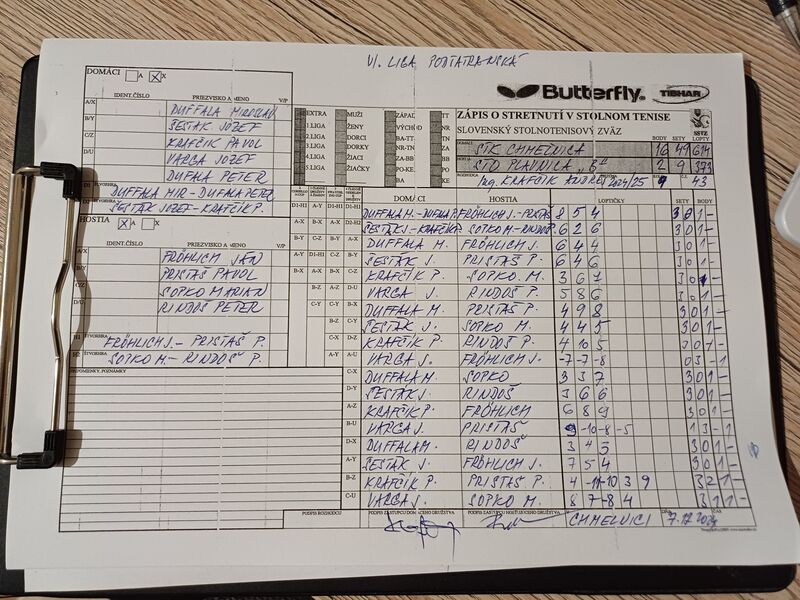 VI. LIGA PODTATRANSKÁ
DOMÁCI A X
IDENT.ČÍSLO PRIEZVISKO A MENO V/P
A/X DUFFALA MIROSLAV
B/Y ŠESTÁK JOZEF
C/Z KRAFČÍK PAVOL
D/U VARGA JOZEF
DUFALA PETER
DUFFALA MIR - DUFALA PETER
ŠESTÁK JOZEF - KRAFČÍK P.
HOSTIA X X
IDENT.ČÍSLO PRIEZVISKO A MENO V/P
A/X FRÖHLICH JÁN
B/Y PRISTÁŠ PAVOL
C/Z SOPKO MARIAN
D/U RINDOŠ PETER
H1 ŠTVORHRA
FRÖHLICH J. - PRISTÁŠ P.
H2 ŠTVORHRA
SOPKO M. - RINDOŠ P.
PRIPOMIENKY, POZNÁMKY
EXTRA MUŽI ZÁPAD TT
1.LIGA ŽENY VÝCHOD NR
2.LIGA DORCI BA-TT
3.LIGA DORKY TN-
4.LIGA ŽIACI ZA-BB
5.LIGA ŽIAČKY PO-KE
BA KE
Butterfly TIBHAR
ZÁPIS O STRETNUTÍ V STOLNOM TENISE
SLOVENSKÝ STOLNOTENISOVÝ ZVÄZ SSTZ
BODY SETY LOPTY
DOMÁCI STK CHMEĽNICA 16 49 614
HOSTIA STO PLAVNICA "B" 2 9 373
Ing. KRAFČÍK ANDREJ 2024/25 9 43
DOMÁCI HOSTIA LOPTIČKY SETY BODY
DUFFALA M.- DUFALA P. FRÖHLICH J.- PRISTÁŠ 8 5 4 3 0 1 -
ŠESTÁK J.- KRAFČÍK P. SOPKO M.- RINDOŠ P. 6 2 6 3 0 1 -
DUFFALA M. FRÖHLICH J. 6 4 4 3 0 1 -
ŠESTÁK J. PRISTÁŠ P. 6 4 6 3 0 1 -
KRAFČÍK P. SOPKO M. 3 6 7 3 0 1 -
VARGA J. RINDOŠ P. 5 8 6 3 0 1 -
DUFFALA M. PRISTÁŠ P. 4 9 8 3 0 1 -
ŠESTÁK J. SOPKO M. 4 4 5 3 0 1 -
KRAFČÍK P. RINDOŠ P. 4 10 5 3 0 1 -
VARGA J. FRÖHLICH J. -7 -7 -8 0 3 - 1
DUFFALA M. SOPKO 3 3 7 3 0 1 -
ŠESTÁK J. RINDOŠ 3 6 6 3 0 1 -
KRAFČÍK P. FRÖHLICH 6 8 9 3 0 1 -
VARGA J. PRISTÁŠ 9 -10 -8 -5 1 3 - 1
DUFFALA M. RINDOŠ 3 4 5 3 0 1 -
ŠESTÁK J. FRÖHLICH J. 7 5 4 3 0 1 -
KRAFČÍK P. PRISTÁŠ P. 4 -11 -10 3 9 3 2 1 -
VARGA J. SOPKO M. 8 7 -8 4 3 1 1 -
PODPIS ROZHODCU PODPIS ZÁSTUPCU DOMÁCEHO DRUŽSTVA PODPIS ZÁSTUPCU HOSŤUJÚCEHO DRUŽSTVA CHMEĽNICI 7.12.2024